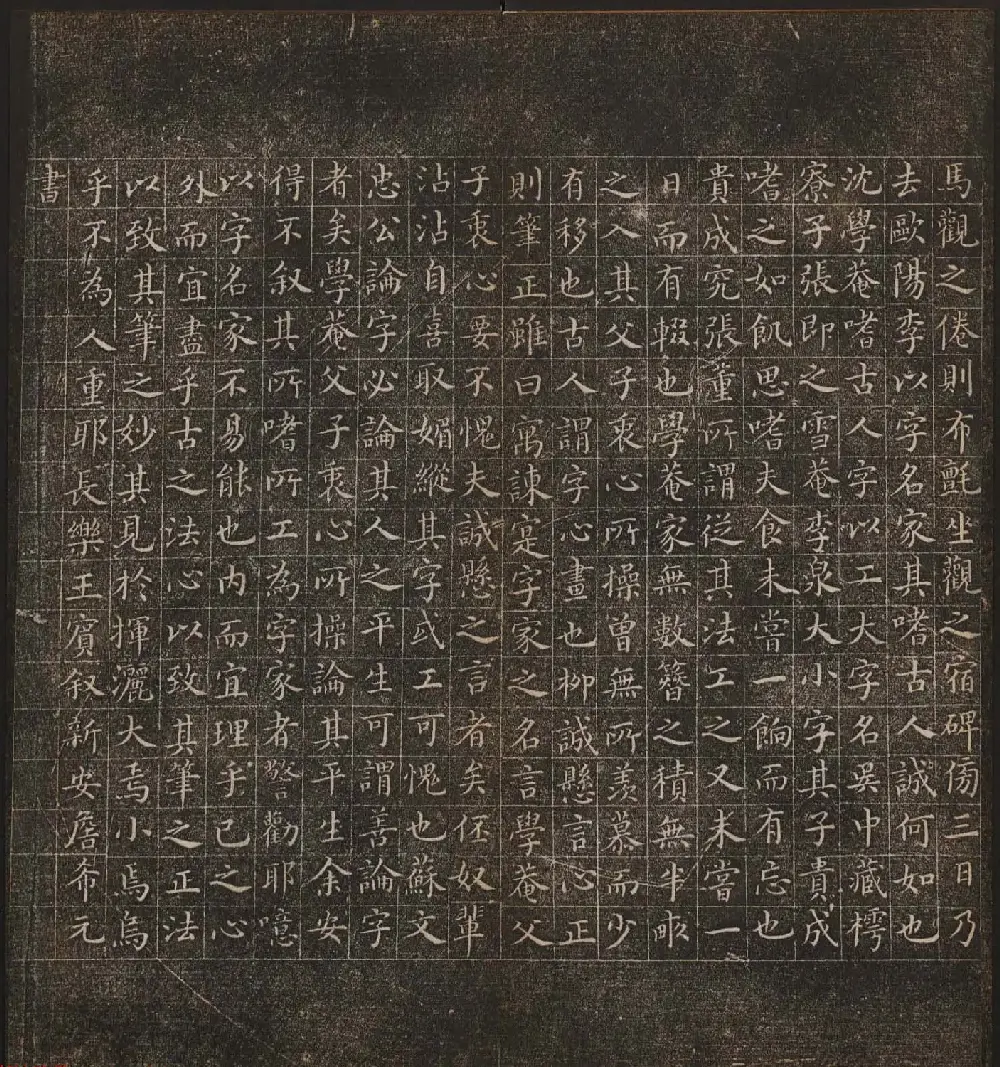 馬觀之倦則布氈坐觀之宿碑傍三日乃
去歐陽李以字名家其嗜古人誠何如也
沈學菴嗜古人字以工大字名吳中藏樗
寮子張即之雪菴李泉大小字其子貴成
嗜之如飢思嗜夫食未嘗一餉而有忘也
貴成究張董所謂從其法工之又未嘗一
日而有輟也學菴家無數簪之積無半畝
之入其父子衷心所操曾無所羨慕而少
有移也古人謂字心畫也柳誠懸言心正
則筆正雖曰寓諫寔字家之名言學菴父
子衷心要不愧夫誠懸之言者矣伾奴輩
沾沾自喜取媚縱其字或工可愧也蘇文
忠公論字必論其人之平生可謂善論字
者矣學菴父子衷心所操論其平生余安
得不叙其所嗜所工為字家者警勸耶噫
以字名家不易能也內而宜理乎已之心
外而宜盡乎古之法心以致其筆之正法
以致其筆之妙其見於揮灑大焉小焉烏
乎不為人重耶長樂王賓叙新安詹希元
書